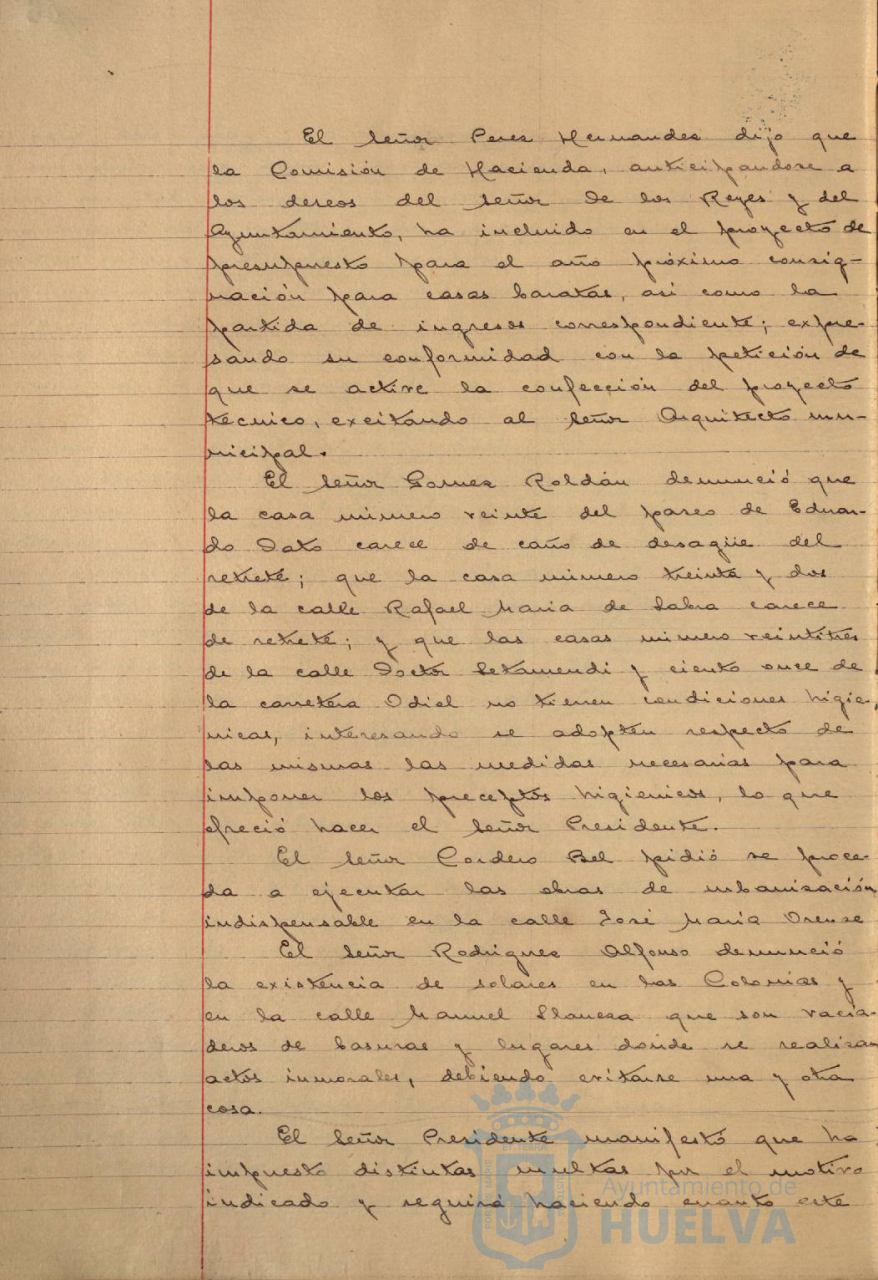 El señor Perez Hernandez dijo que
la Comisión de Hacienda, anticipandose a
los deseos del señor de los Reyes y del
Ayuntamiento, ha incluido en el proyecto de
presupuesto para el año próximo consig-
nación para casas baratas, asi como la
partida de ingresos correspondiente; expre-
sando su conformidad con la petición de
que se active la confección del proyecto
técnico, excitando al señor Arquitecto mu-
nicipal.
El señor Gomez Roldán denunció que
la casa número veinte del paseo de Eduar-
do Dato carece de caño de desagüe del
retrete; que la casa número treinta y dos
de la calle Rafael Maria de Labra carece
de retrete; y que las casas número veintitres
de la calle Doctor Letamendi y ciento once de
la carretera Odiel no tienen condiciones higie-
nicas, interesando se adopten respecto de
las mismas las medidas necesarias para
imponer los preceptos higienicos, lo que
ofreció hacer el señor Presidente.
El señor Cordero Bel pidió se proce-
da a ejecutar las obras de urbanización
indispensable en la calle José Maria Orense
El señor Rodriguez Alfonso denunció
la existencia de solares en las Colonias y
en la calle Manuel Llaneza que son vacia-
deros de basuras y lugares donde se realizan
actos inmorales, debiendo evitarse una y otra
cosa.
El señor Presidente manifestó que ha
impuesto distintas multas por el motivo
indicado y seguirá haciendo cuanto esté
Ayuntamiento de
HUELVA